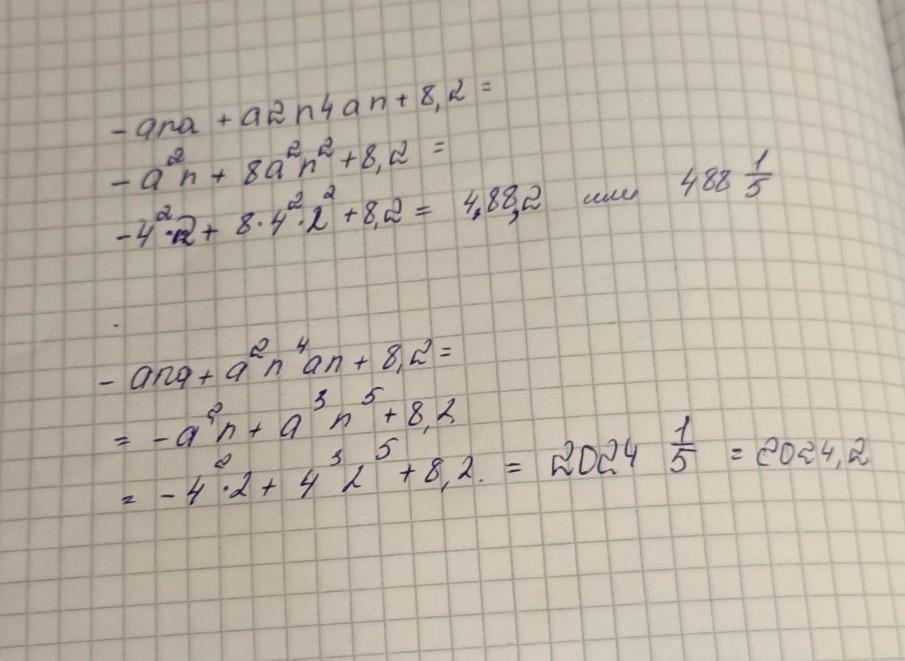 -ana + a2n4an + 8,2 =
-a²n + 8a²n² + 8,2 =
-4²·2 + 8·4²·2² + 8,2 = 4,88,2 или 488 1/5
-ana + a²n⁴an + 8,2 =
= -a²n + a³n⁵ + 8,2
= -4²·2 + 4³2⁵ + 8,2. = 2024 1/5 = 2024,2